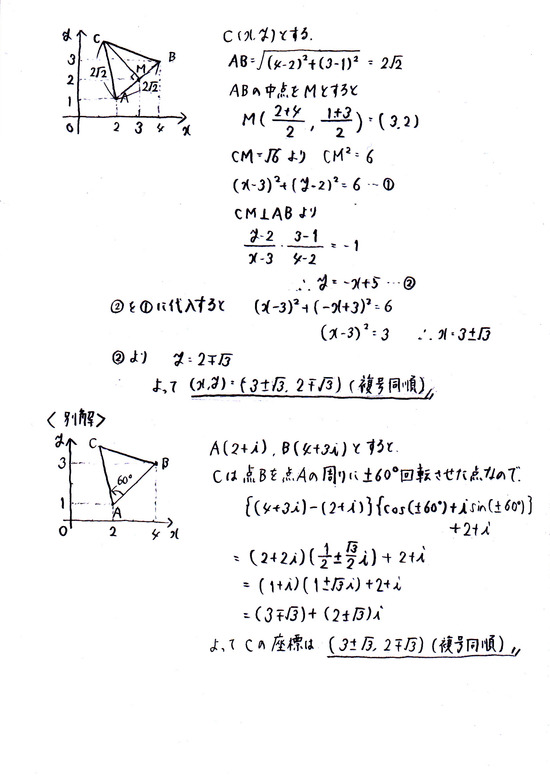 y
C
B
3
2√2
M
2
2√2
1
A
O
2 3 4
x
C(x,y)とする.
AB=√(4-2)²+(3-1)² = 2√2
ABの中点をMとすると
M(2+4/2, 1+3/2)=(3,2)
CM=√6より CM²=6
(x-3)²+(y-2)²=6 …①
CM⊥ABより
y-2/x-3・3-1/4-2=-1
∴y=-x+5 …②
②を①に代入すると (x-3)²+(-x+3)²=6
(x-3)²=3 ∴x=3±√3
②より y=2∓√3
よって (x,y)=(3±√3, 2∓√3)(複号同順)〃
<別解>
y
C
3
B
60°
1
A
O
2
4
x
A(2+i), B(4+3i)とすると.
Cは点Bを点Aの周りに±60°回転させた点なので.
{(4+3i)-(2+i)}{cos(±60°)+i sin(±60°)}
+2+i
=(2+2i)(1/2±√3/2i)+2+i
=(1+i)(1±√3i)+2+i
=(3∓√3)+(2±√3)i
よってCの座標は (3±√3, 2∓√3)(複号同順)〃